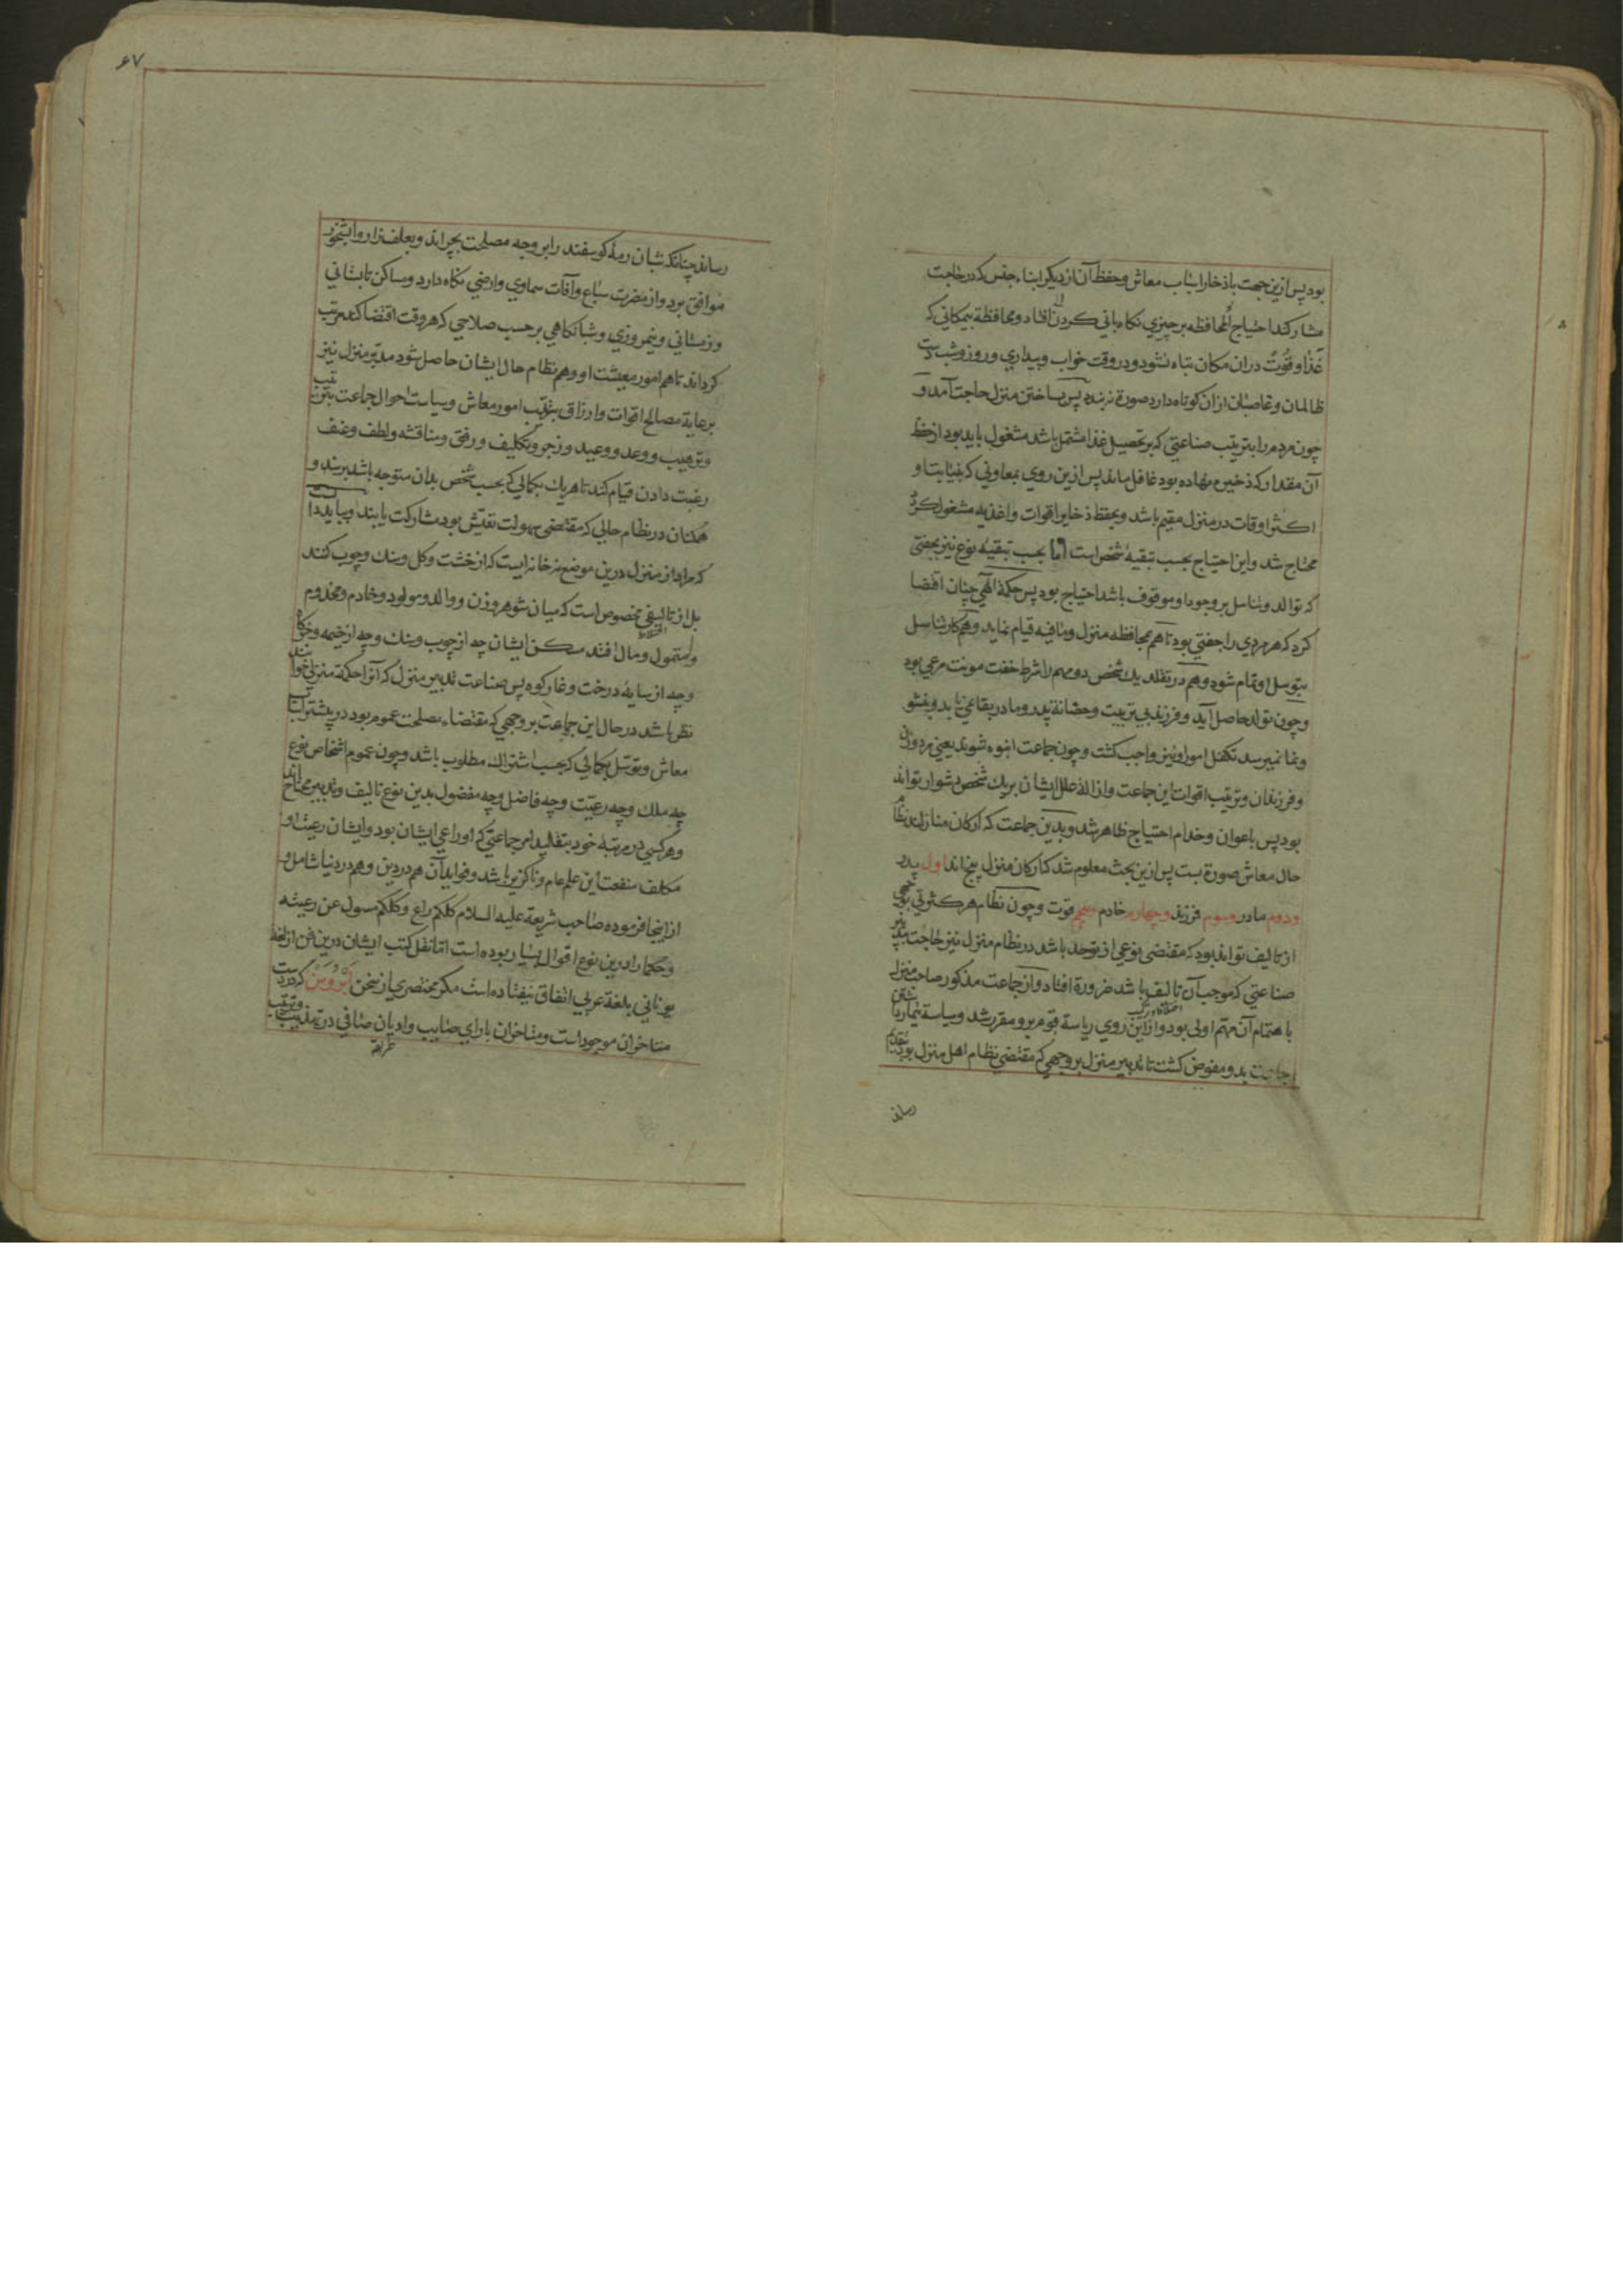 بود پس ازین جهت باذخار اسباب معاش و حفظ آن از دیکر ابناء جنس که در حاجت
مشارکند احتیاج افتاد و محافظه بر چیزی نکاه بانی کردن و محافظة بیمکانی که
غذا و قوت دران مکان تباه نشود و در وقت خواب و بیداری و روز و شب دست
ظالمان و غاصبان ازان کوتاه دارد صورة نبندد پس بساختن منزل حاجت آمد و
چون مردم را بترتیب صناعتی که بر تحصیل غذا مشتمل باشد مشغول باید بود از حفظ
آن مقدار که ذخیره نهاده بود غافل ماند پس ازین روی بمعاونی که بنیابت او
اکثر اوقات در منزل مقیم باشد و بحفظ ذخایر اقوات و اغذیه مشغول کردد
محتاج شد و این احتیاج بحسب تبقیه شخص است اما بحسب تبقیه نوع نیز بجفتی
که توالد و تناسل بر وجود او موقوف باشد احتیاج بود پس حکمة الهی چنان اقتضا
کرد که هر مردی را جفتی بود تا هم بمحافظه منزل و مافیه قیام نماید و هم کار تناسل
بتوسل او تمام شود و هم در تقلد یک شخص دو مهم را شرط خفت مونت مرعی بود
و چون تولد حاصل آید و فرزند بی تربیت و حضانة پدر و مادر بقا نمی یابد و بنشو
و نما نمیرسد تکفل امور او نیز واجب کشت و چون جماعت انبوه شوند یعنی مرد و زن
و فرزندان و ترتیب اقوات این جماعت و ازالة علل ایشان بر یک شخص دشوار تواند
بود پس باعوان و خدام احتیاج ظاهر شد و بدین جماعت که ارکان منازلند نظام
حال معاش صورة بست پس ازین بحث معلوم شد که ارکان منزل پنج اند اول پدر
و دوم مادر و سوم فرزند و چهارم خادم و پنجم قوت و چون نظام هر کثرتی بوجهی
از تالیف تواند بود که مقتضی نوعی از توحد باشد در نظام منزل نیز حاجت بتدبیر
صناعتی که موجب آن تالیف باشد ضرورة افتاد و از جماعت مذکور صاحب منزل
باهتمام آن مهم اولی بود و ازاین روی ریاسة قوم برو مقرر شد و سیاسة تیمار داشتن
جماعت بدو مفوض کشت تا تدبیر منزل بر وجهی که مقتضی نظام اهل منزل بود بتقدیم
رساند
۶۷
رساند چنانکه شبان رمهٔ کوسفند را بر وجه مصلحت بچراند و بعلف زار و آبشخور
موافق برد و از مضرت سباع و آفات سماوی و ارضی نکاه دارد و مساکن تابستانی
و زمستانی و نیمروزی و شبانکاهی بر حسب صلاحی که هر وقت اقتضا کند مرتب
کرداند تا هم امور معیشت او و هم نظام حال ایشان حاصل شود مدبر منزل نیز
برعایة مصالح اقوات و ارزاق و ترتیب امور معاش و سیاست احوال جماعت بترغیب
و ترهیب و وعد و وعید و زجر و تکلیف و رفق و مناقشه و لطف و عنف
رغبت دادن قیام کند تا هر یک بکمالی که بحسب شخص بدان متوجه باشد برسند و
همکنان در نظام حالی که مقتضی سهولت تعیش بود مشارکت یابند و بباید دانست
که مراد از منزل درین موضع نه خانه ایست که از خشت و کل و سنک و چوب کنند
بل از تالیفی مخصوص است که میان شوهر و زن و والد و مولود و خادم و مخدوم
و متمول و مال افتد مسکن ایشان چه از چوب و سنک و چه از خیمه و خرکاه
و چه از سایهٔ درخت و غار کوه پس صناعت تدبیر منزل که آنرا حکمة منزلی خوانند
نظر باشد در حال این جماعت بر وجهی که مقتضاء مصلحت عموم بود در تیسیر اسباب
معاش و توسل بکمالی که بحسب اشتراک مطلوب باشد و چون عموم اشخاص نوع
چه ملک و چه رعیت و چه فاضل و چه مفضول بدین نوع تالیف و تدبیر محتاج اند
و هر کسی در مرتبه خود بتقلید امر جماعتی که او راعی ایشان بود و ایشان رعیت او
مکلف منفعت این علم عام و ناکزیر باشد و فواید آن هم در دین و هم در دنیا شامل و
ازاینجا فرموده صاحب شریعة علیه السلام کلکم راع و کلکم مسول عن رعیته
و حکما را درین نوع اقوال بسیار بوده است اما نقل کتب ایشان درین فن از لغة
یونانی بلغة عربی اتفاق نیفتاده است مکر مختصری از سخن ابروسن که در دست
متاخران موجود است و متاخران بارای صایب و ادیان صافی در تهذیب و ترتیب